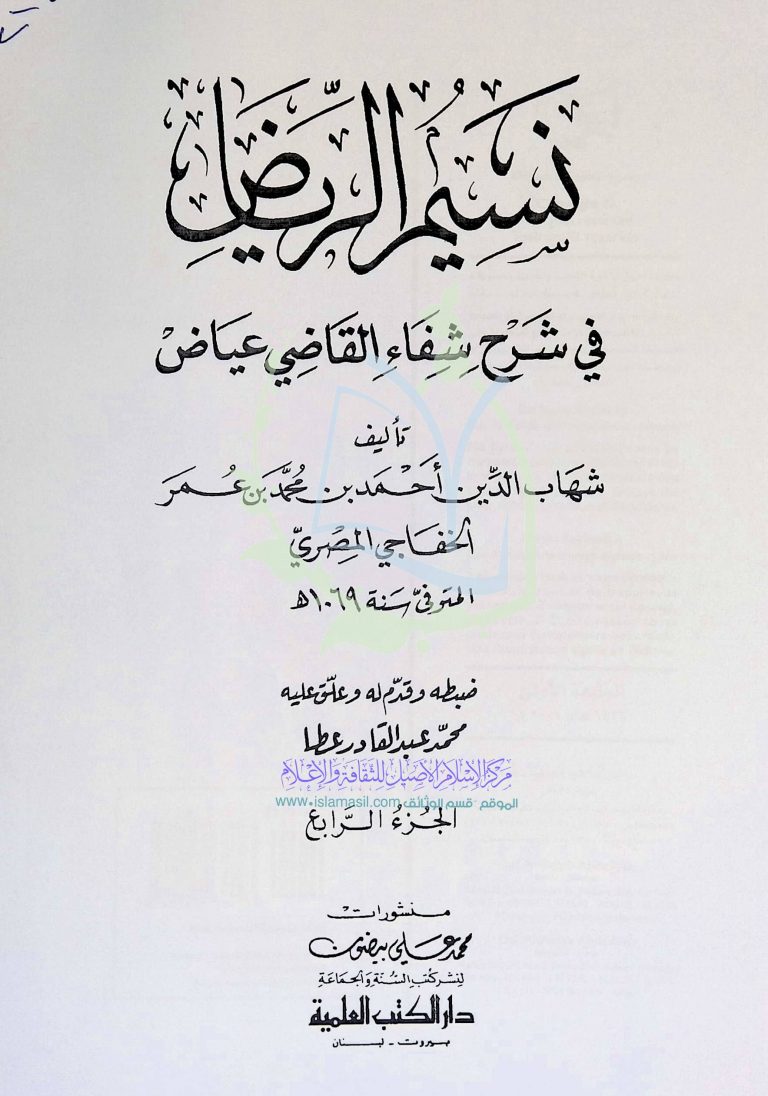 نَسِيمُ الرِّيَاضِ
في شَرْح شِفَاءِ القَاضِي عيَاضْ
تأليف
شهَاب الدِّين أَحْمَد بن مُحمَّد بَن عُمَرَ
الخفَاجي المِصْريّ
المتوفىّ سَنة ١٠٦٩ھ
ضبطه وقدّم له وعلّق عليه
محمّد عبد القادر عطا
مركز الإسلام الأصيل للثقافة والإعلام
الموقع - قسم الوثائق www.islamasil.com
الجُزءُ الرَّابع
منشورات
محمد علي بيضون
لنشر كتب السُّنّة وَالجمَاعَة
دار الكتب العلمية
بيروت - لبنان